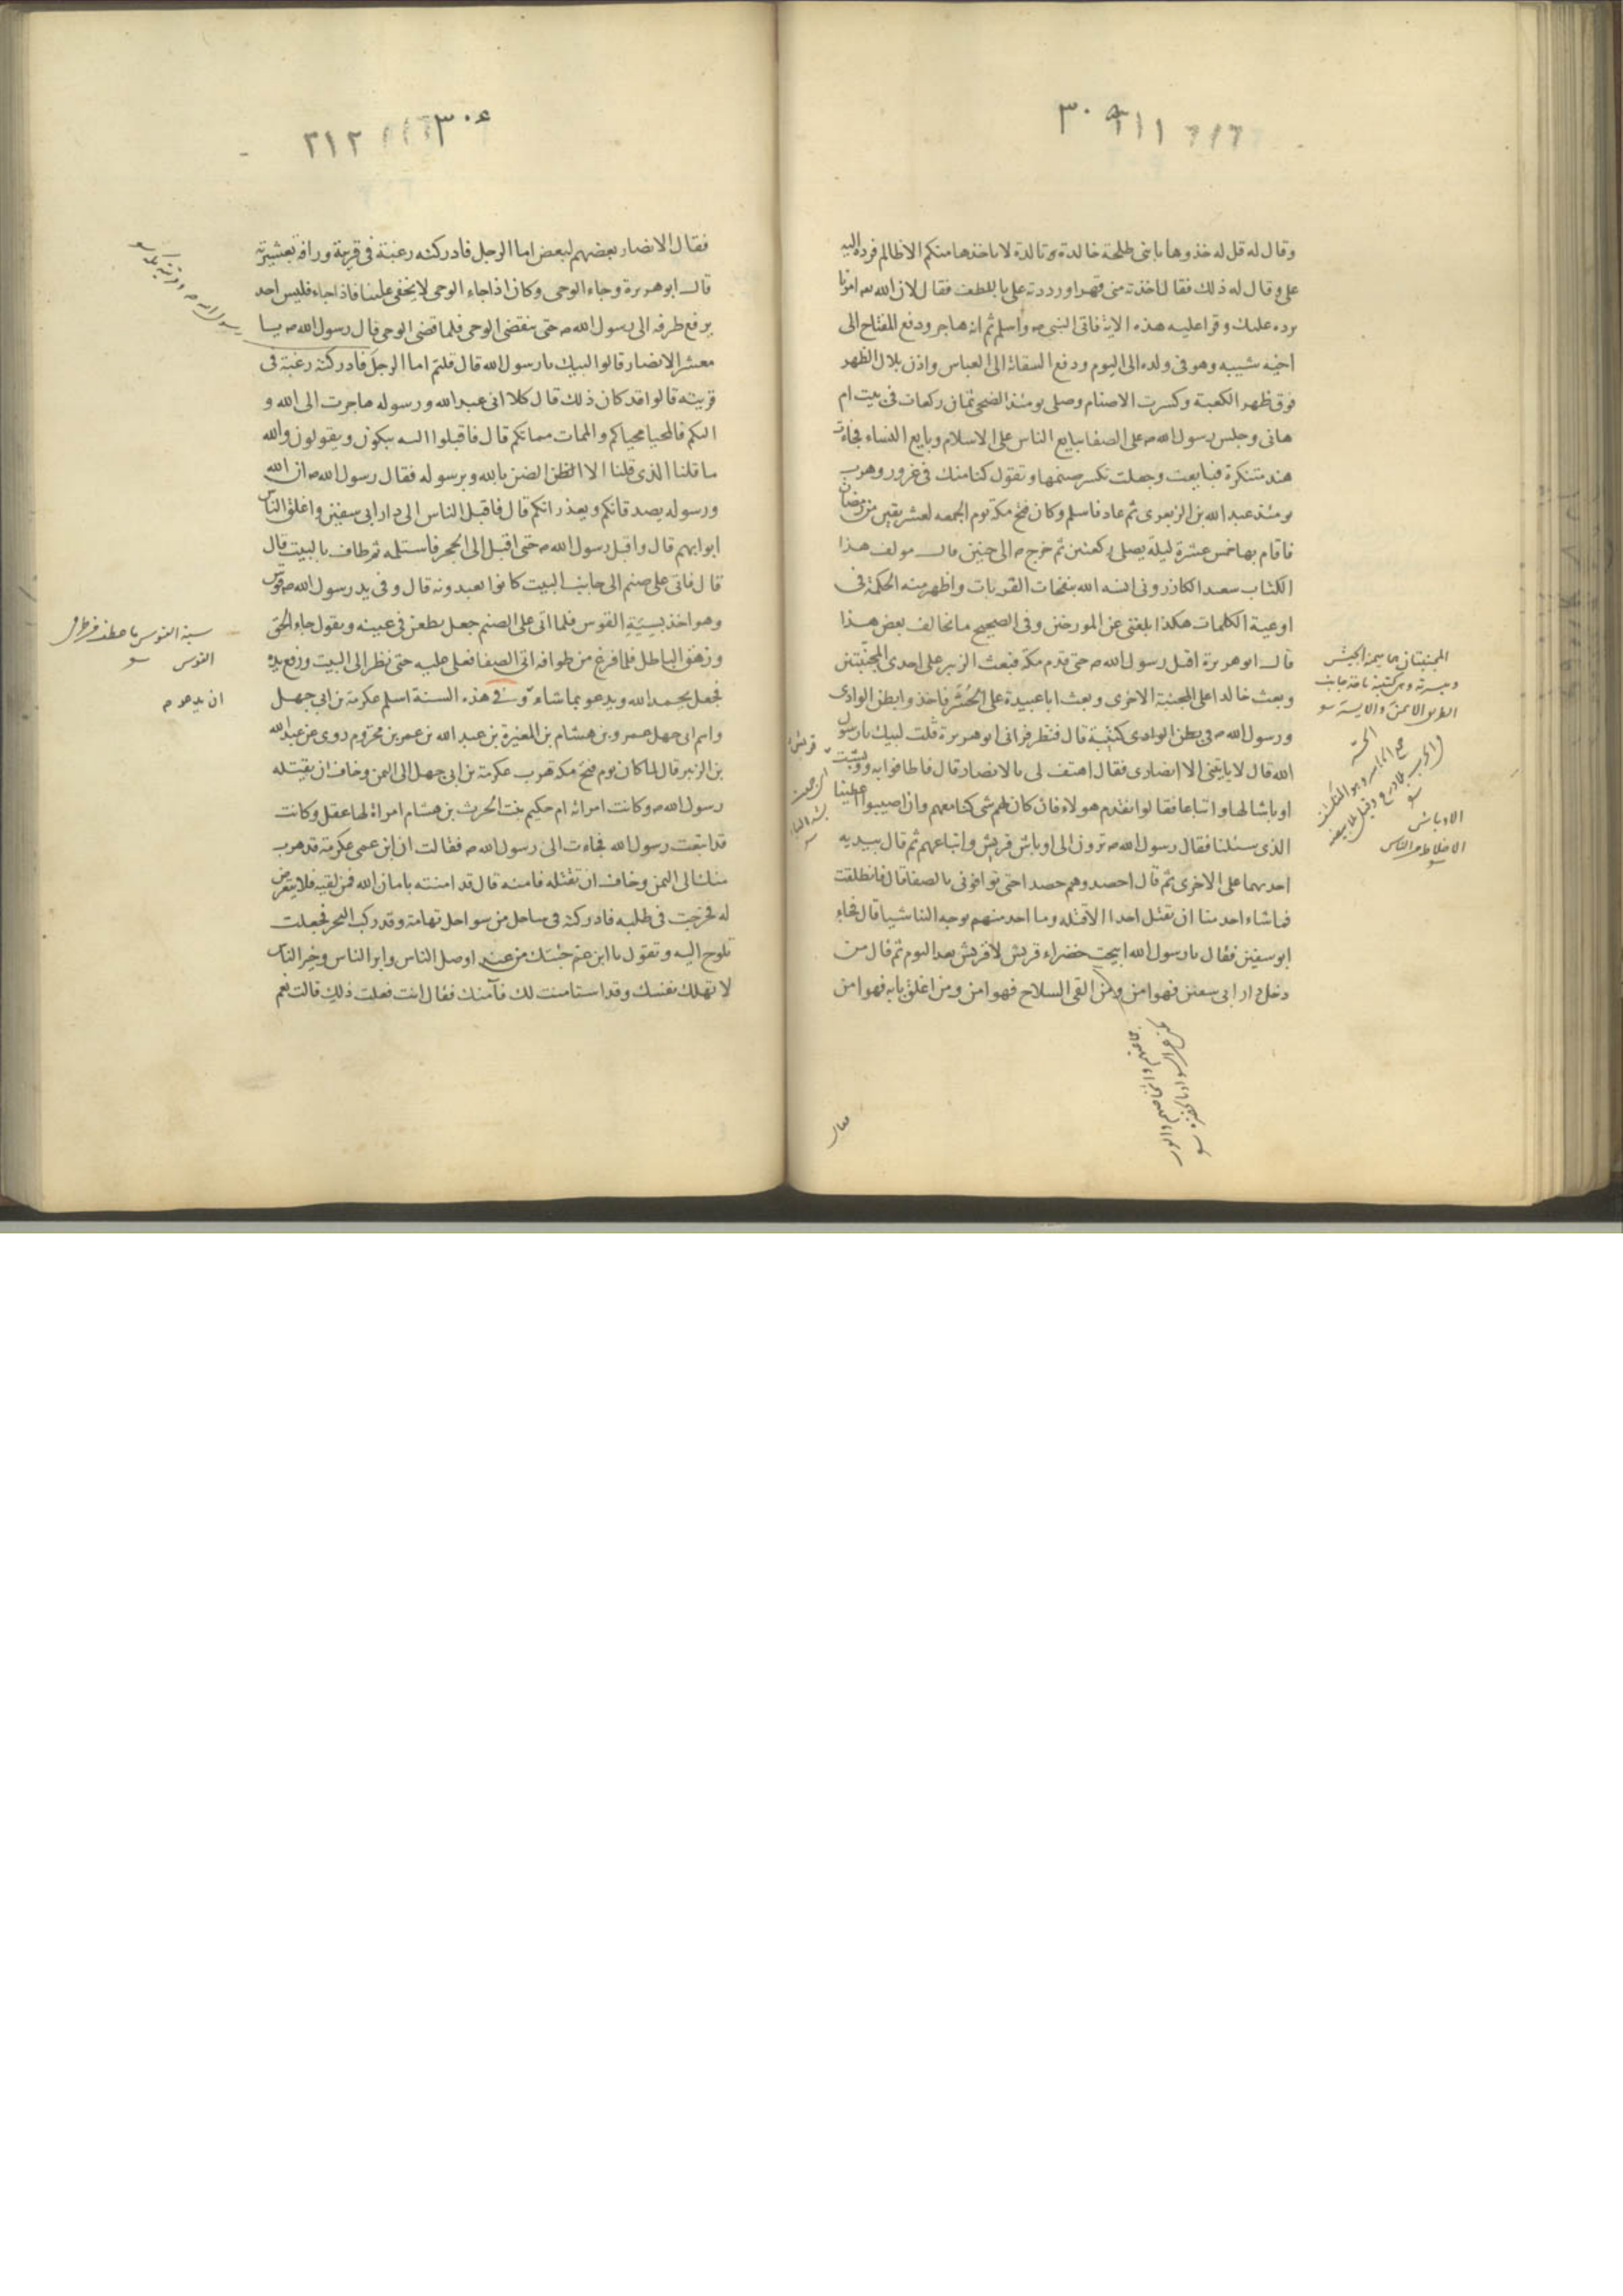 وقال له قل له خذوها يا بنى طلحة خالدة وتالدة لا ياخذها منكم الا ظالم فرده اليه
على وقال له ذلك فقال اخذته منى قهرا ورددته على باللطف فقال لان الله تعـ امرنا
برده عليك وقرا عليه هذه الاية فاتى النبى صـ واسلم ثم انه هاجر ودفع المفتاح الى
اخيه شيبه وهو فى ولده الى اليوم ودفع السقاية الى العباس واذن بلال الظهر
فوق ظهر الكعبة وكسرت الاصنام وصلى يومئذ الضحى ثمان ركعات فى بيت ام
هانى وجلس رسول الله صـ على الصفا يبايع الناس على الاسلام وبايع النساء فجاءت
هند متنكرة فبايعت وجعلت تكسر صنمها وتقول كنا منك فى غرور وهرب
يومئذ عبد الله بن الزبعرى ثم عاد فاسلم وكان فتح مكة يوم الجمعه لعشر بقين من رمضان
فاقام بها خمس عشرة ليلة يصلى ركعتين ثم خرج صـ الى حنين قال مولف هذا
الكتاب سعيد الكازرونى انسه الله بنفحات القربات واظهر منه الحكمة فى
اوعية الكلمات هكذا بلغنى عن المورخين وفى الصحيح ما يخالف بعض هذا
قال ابو هريرة اقبل رسول الله صـ حتى قدم مكة فبعث الزبير على احدى المجنبتين
وبعث خالدا على المجنبة الاخرى وبعث ابا عبيدة على الحُسَّر فاخذوا بطن الوادى
ورسول الله صـ فى بطن الوادى كتيبة قال فنظر فرانى ابو هريرة قلت لبيك يا رسول
الله قال لا ياتينى الا انصارى فقال اهتف لى بالانصار قال فاطافوا به ووبشت
اوباشا لها واتباعا فقالوا نقدم هولاء فان كان لهم شى كنا معهم وان اصيبوا اعطينا
الذى سئلنا فقال رسول الله صـ ترون الى اوباش قريش واتباعهم ثم قال بيديه
احديهما على الاخرى ثم قال احصدوهم حصدا حتى توافونى بالصفا قال فانطلقت
فما شاء احد منا ان تقتل احدا الا قتله وما احد منهم يوجه الينا شيا قال فجاء
ابو سفين فقال يا رسول الله ابيحت خضراء قريش لا قريش بعد اليوم ثم قال من
دخل دار ابى سفين فهو امن ومن القى السلاح فهو امن ومن اغلق بابه فهو امن
المجنبتان ميمنة الجيش
الاوباش
الاخلاط من الناس
فقال
٣١٢
فقال الانصار بعضهم لبعض اما الرجل فادركته رغبة فى قرية ورافة بعشيرته
قال ابو هريرة وجاء الوحى وكان اذا جاء الوحى لا يخفى علينا فاذا جاء فليس احد
يرفع طرفه الى رسول الله صـ حتى ينقضى الوحى فلما قضى الوحى قال رسول الله صـ يا
معشر الانصار قالوا لبيك يا رسول الله قال قلتم اما الرجل فادركته رغبة فى
قريته قالوا قد كان ذلك قال كلا انى عبد الله ورسوله هاجرت الى الله و
اليكم فالمحيا محياكم والممات مماتكم قال فاقبلوا اليه يبكون ويقولون والله
ما قلنا الذى قلنا الا الظن الضن بالله وبرسوله فقال رسول الله صـ ان الله
ورسوله يصدقانكم ويعذرانكم قال فاقبل الناس الى دار ابى سفين واغلق الناس
ابوابهم قال واقبل رسول الله صـ حتى اقبل الى الحجر فاستلمه ثم طاف بالبيت قال
قال فاتى على صنم الى جانب البيت كانوا يعبدونه قال وفى يد رسول الله صـ قوس
وهو اخذ بسِيَةِ القوس فلما اتى على الصنم جعل يطعن فى عينه ويقول جاء الحق
وزهق الباطل فلما فرغ من طوافه اتى الصفا فعلى عليه حتى نظر الى البيت ورفع يده
فجعل يحمد الله ويدعو بما شاء وفى هذه السنة اسلم عكرمة بن ابى جهل
واسم ابى جهل عمرو بن هشام بن المغيرة بن عبد الله بن عمر بن مخزوم روى عن عبد الله
بن الزبير قال لما كان يوم فتح مكة هرب عكرمة بن ابى جهل الى اليمن وخاف ان يقتله
رسول الله صـ وكانت امراته ام حكيم بنت الحرث بن هشام امراة لها عقل وكانت
قد اتبعت رسول الله فجاءت الى رسول الله صـ فقالت ان ابن عمى عكرمة قد هرب
منك الى اليمن وخاف ان تقتله فامنه قال قد امنته بامان الله فمن لقيه فلا يتعرض
له فخرجت فى طلبه فادركته فى ساحل من سواحل تهامة وقد ركب البحر فجعلت
تلوح اليه وتقول يا ابن عم جئتك من عند اوصل الناس وابر الناس وخير الناس
لا تهلك نفسك وقد استامنت لك فآمنك فقال انت فعلت ذلك قالت نعم
القوس
ان يدعو م